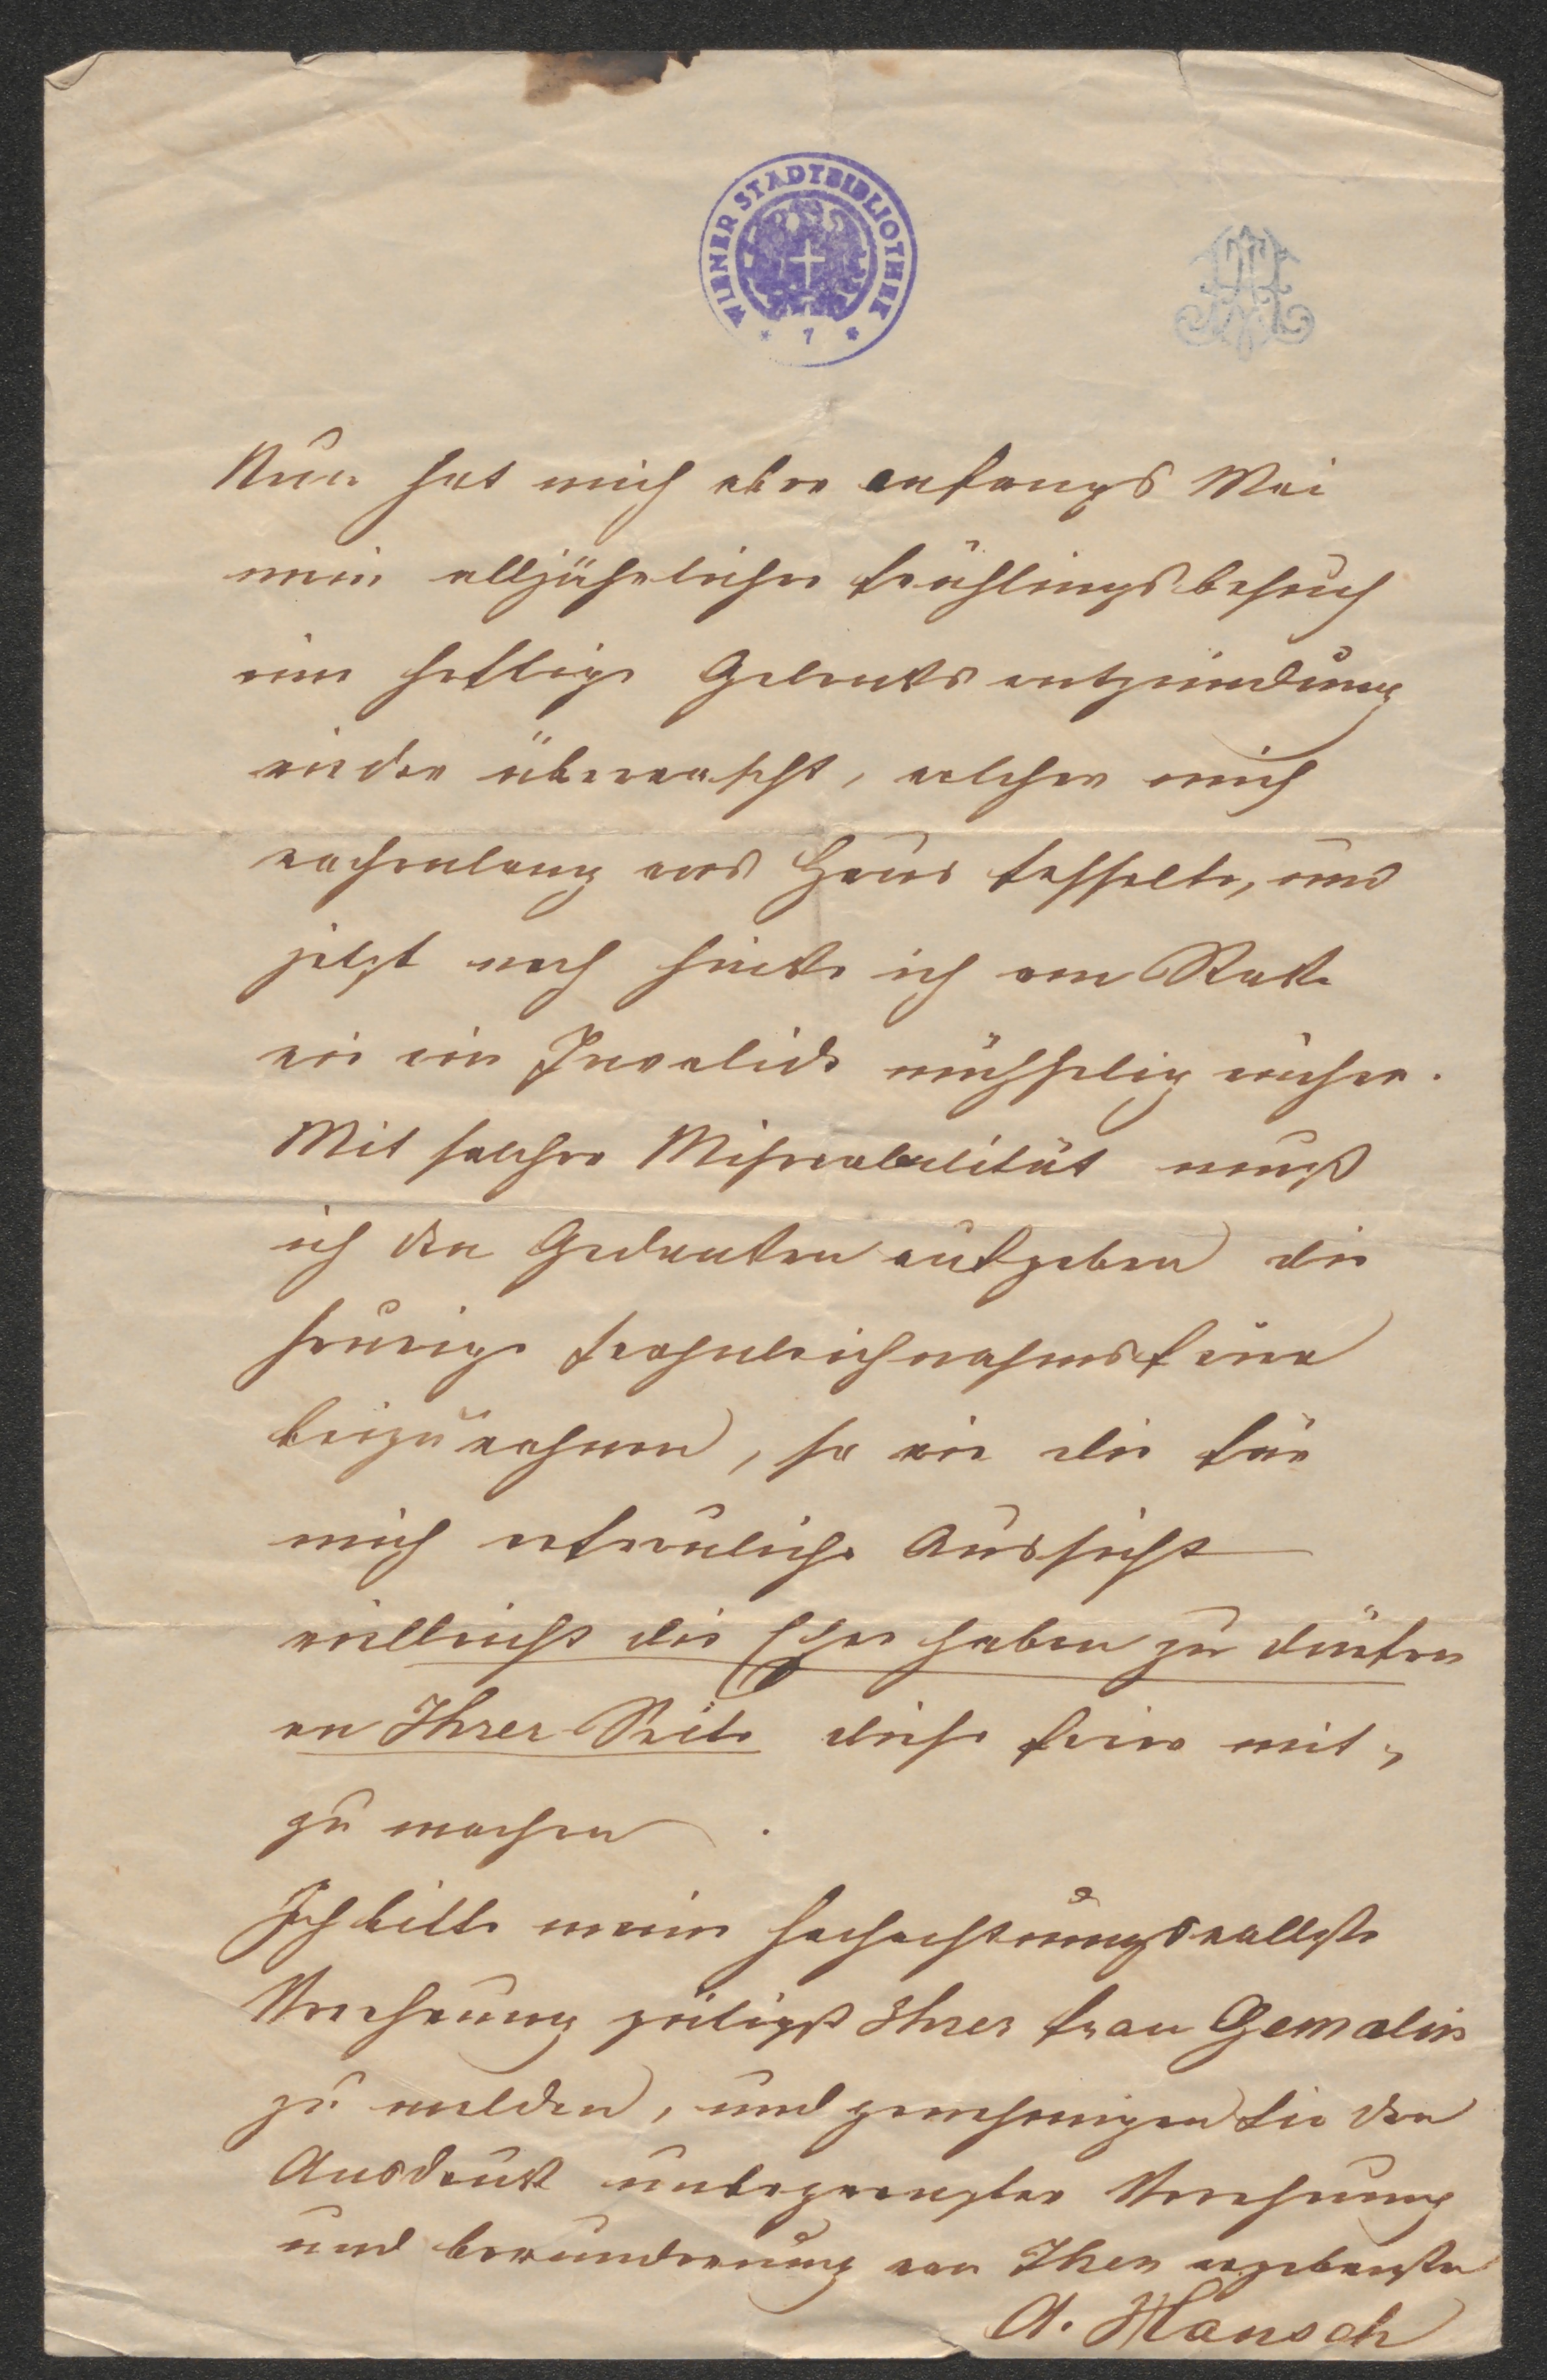 WIENER STADTBIBLIOTHEK
* 7 *
Nun hat mich aber anfangs Mai
mein alljährlicher Frühlingsbesuch
eine heftige Gelenksentzündung
wieder überrascht, welcher mich
wochenlang ans Haus fesselte, und
jetzt noch hinke ich am Stocke
wie ein Invalide mühselig einher.
Mit solcher Miserabilität muß
ich den Gedanken aufgeben die
heurige Frohnleichnahmsfeier
beizuwohnen, so wie die für
mich erfreuliche Aussicht
vielleicht die Ehre haben zu dürfen
an Ihrer Seite diese Feier mit,
zu machen.
Ich bitte meine hochachtungsvollste
Verehrung gütigst Ihrer Frau Gemalin
zu melden, und genehmigen Sie den
Ausdruck unbegrenzter Verehrung
und Bewunderung von Ihren ergebensten
A. Hansch